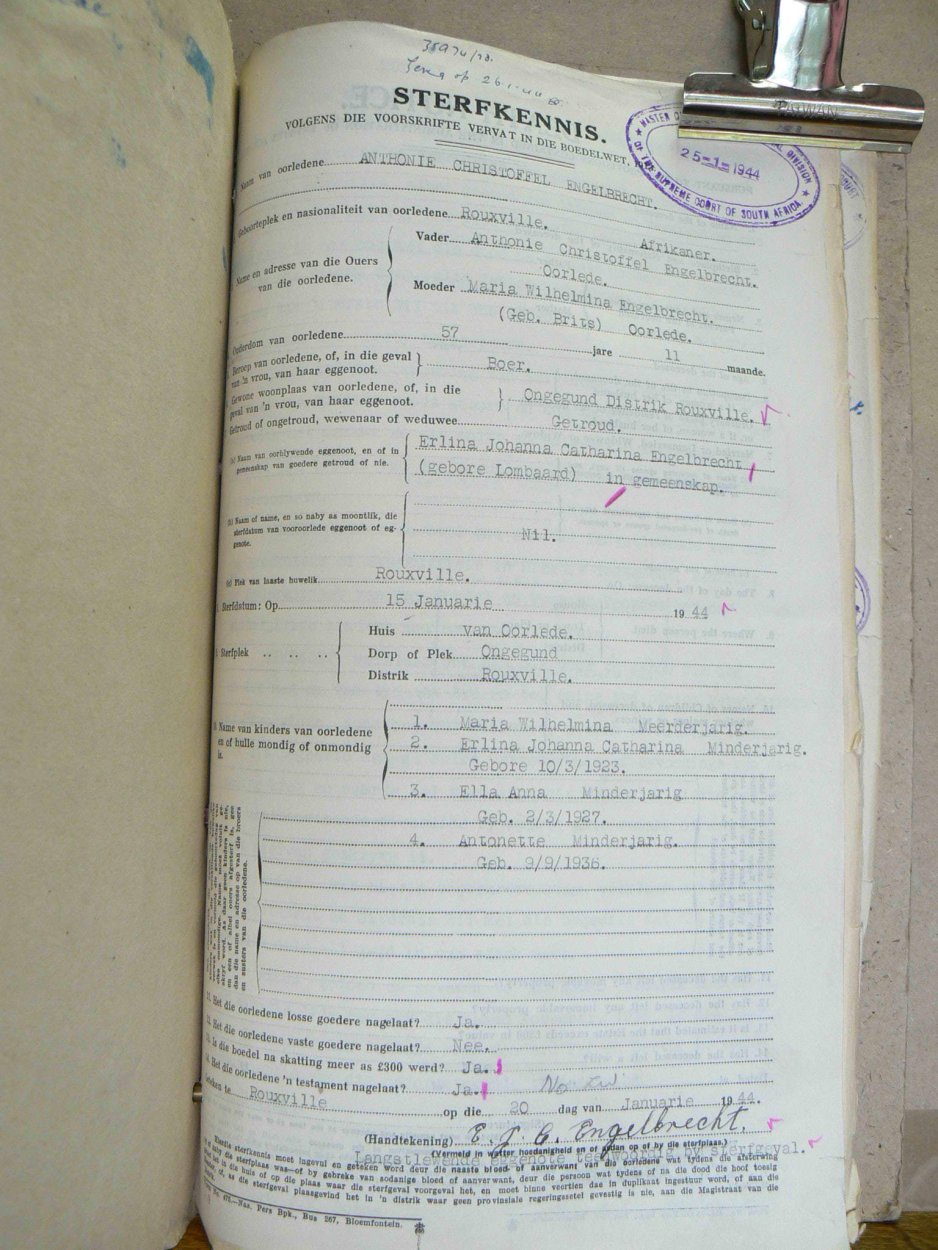 35974/78.
op 26
STERFKENNIS.
VOLGENS DIE VOORSKRIFTE VERVAT IN DIE BOEDELWET,
TAIWAN
MASTER DIVISION OF THE SUPREME COURT OF SOUTH AFRICA
25-1-1944
Naam van oorledene ANTHONIE CHRISTOFFEL ENGELBRECHT.
Geboorteplek en nasionaliteit van oorledene Rouxville. Afrikaner.
Name en adresse van die Ouers van die oorledene.
Vader Anthonie Christoffel Engelbrecht.
Oorlede.
Moeder Maria Wilhelmina Engelbrecht.
(Geb. Brits) Oorlede.
Ouderdom van oorledene 57 jare 11 maande.
Beroep van oorledene, of, in die geval van 'n vrou, van haar eggenoot. Boer.
Gewone woonplaas van oorledene, of, in die geval van 'n vrou, van haar eggenoot. Ongegund Distrik Rouxville.
Getroud of ongetroud, wewenaar of weduwee Getroud.
(a) Naam van oorblywende eggenoot, en of in gemeenskap van goedere getroud of nie.
Erlina Johanna Catharina Engelbrecht
(gebore Lombaard) in gemeenskap.
(b) Naam of name, en so naby as moontlik, die sterfdatum van vooroorlede eggenoot of eggenote.
Nil.
(c) Plek van laaste huwelik Rouxville.
Sterfdatum: Op 15 Januarie 1944
Sterfplek .. .. ..
Huis van Oorlede.
Dorp of Plek Ongegund
Distrik Rouxville.
Name van kinders van oorledene en of hulle mondig of onmondig is.
1. Maria Wilhelmina Meerderjarig.
2. Erlina Johanna Catharina Minderjarig.
Gebore 10/3/1923.
3. Ella Anna Minderjarig
Geb. 2/3/1927.
4. Antonette Minderjarig.
Geb. 9/9/1936.
Het die oorledene losse goedere nagelaat? Ja.
Het die oorledene vaste goedere nagelaat? Nee.
Is die boedel na skatting meer as £300 werd? Ja.
Het die oorledene 'n testament nagelaat? Ja.
Geteken te Rouxville op die 20 dag van Januarie 1944.
(Handtekening) E. J. C. Engelbrecht.
(Vermeld in watter hoedanigheid en of aldan op of by die sterfplaas.)
Langslewende eggenote teenwoordig by sterfgeval.
Nas. Pers Bpk., Bus 267, Bloemfontein.